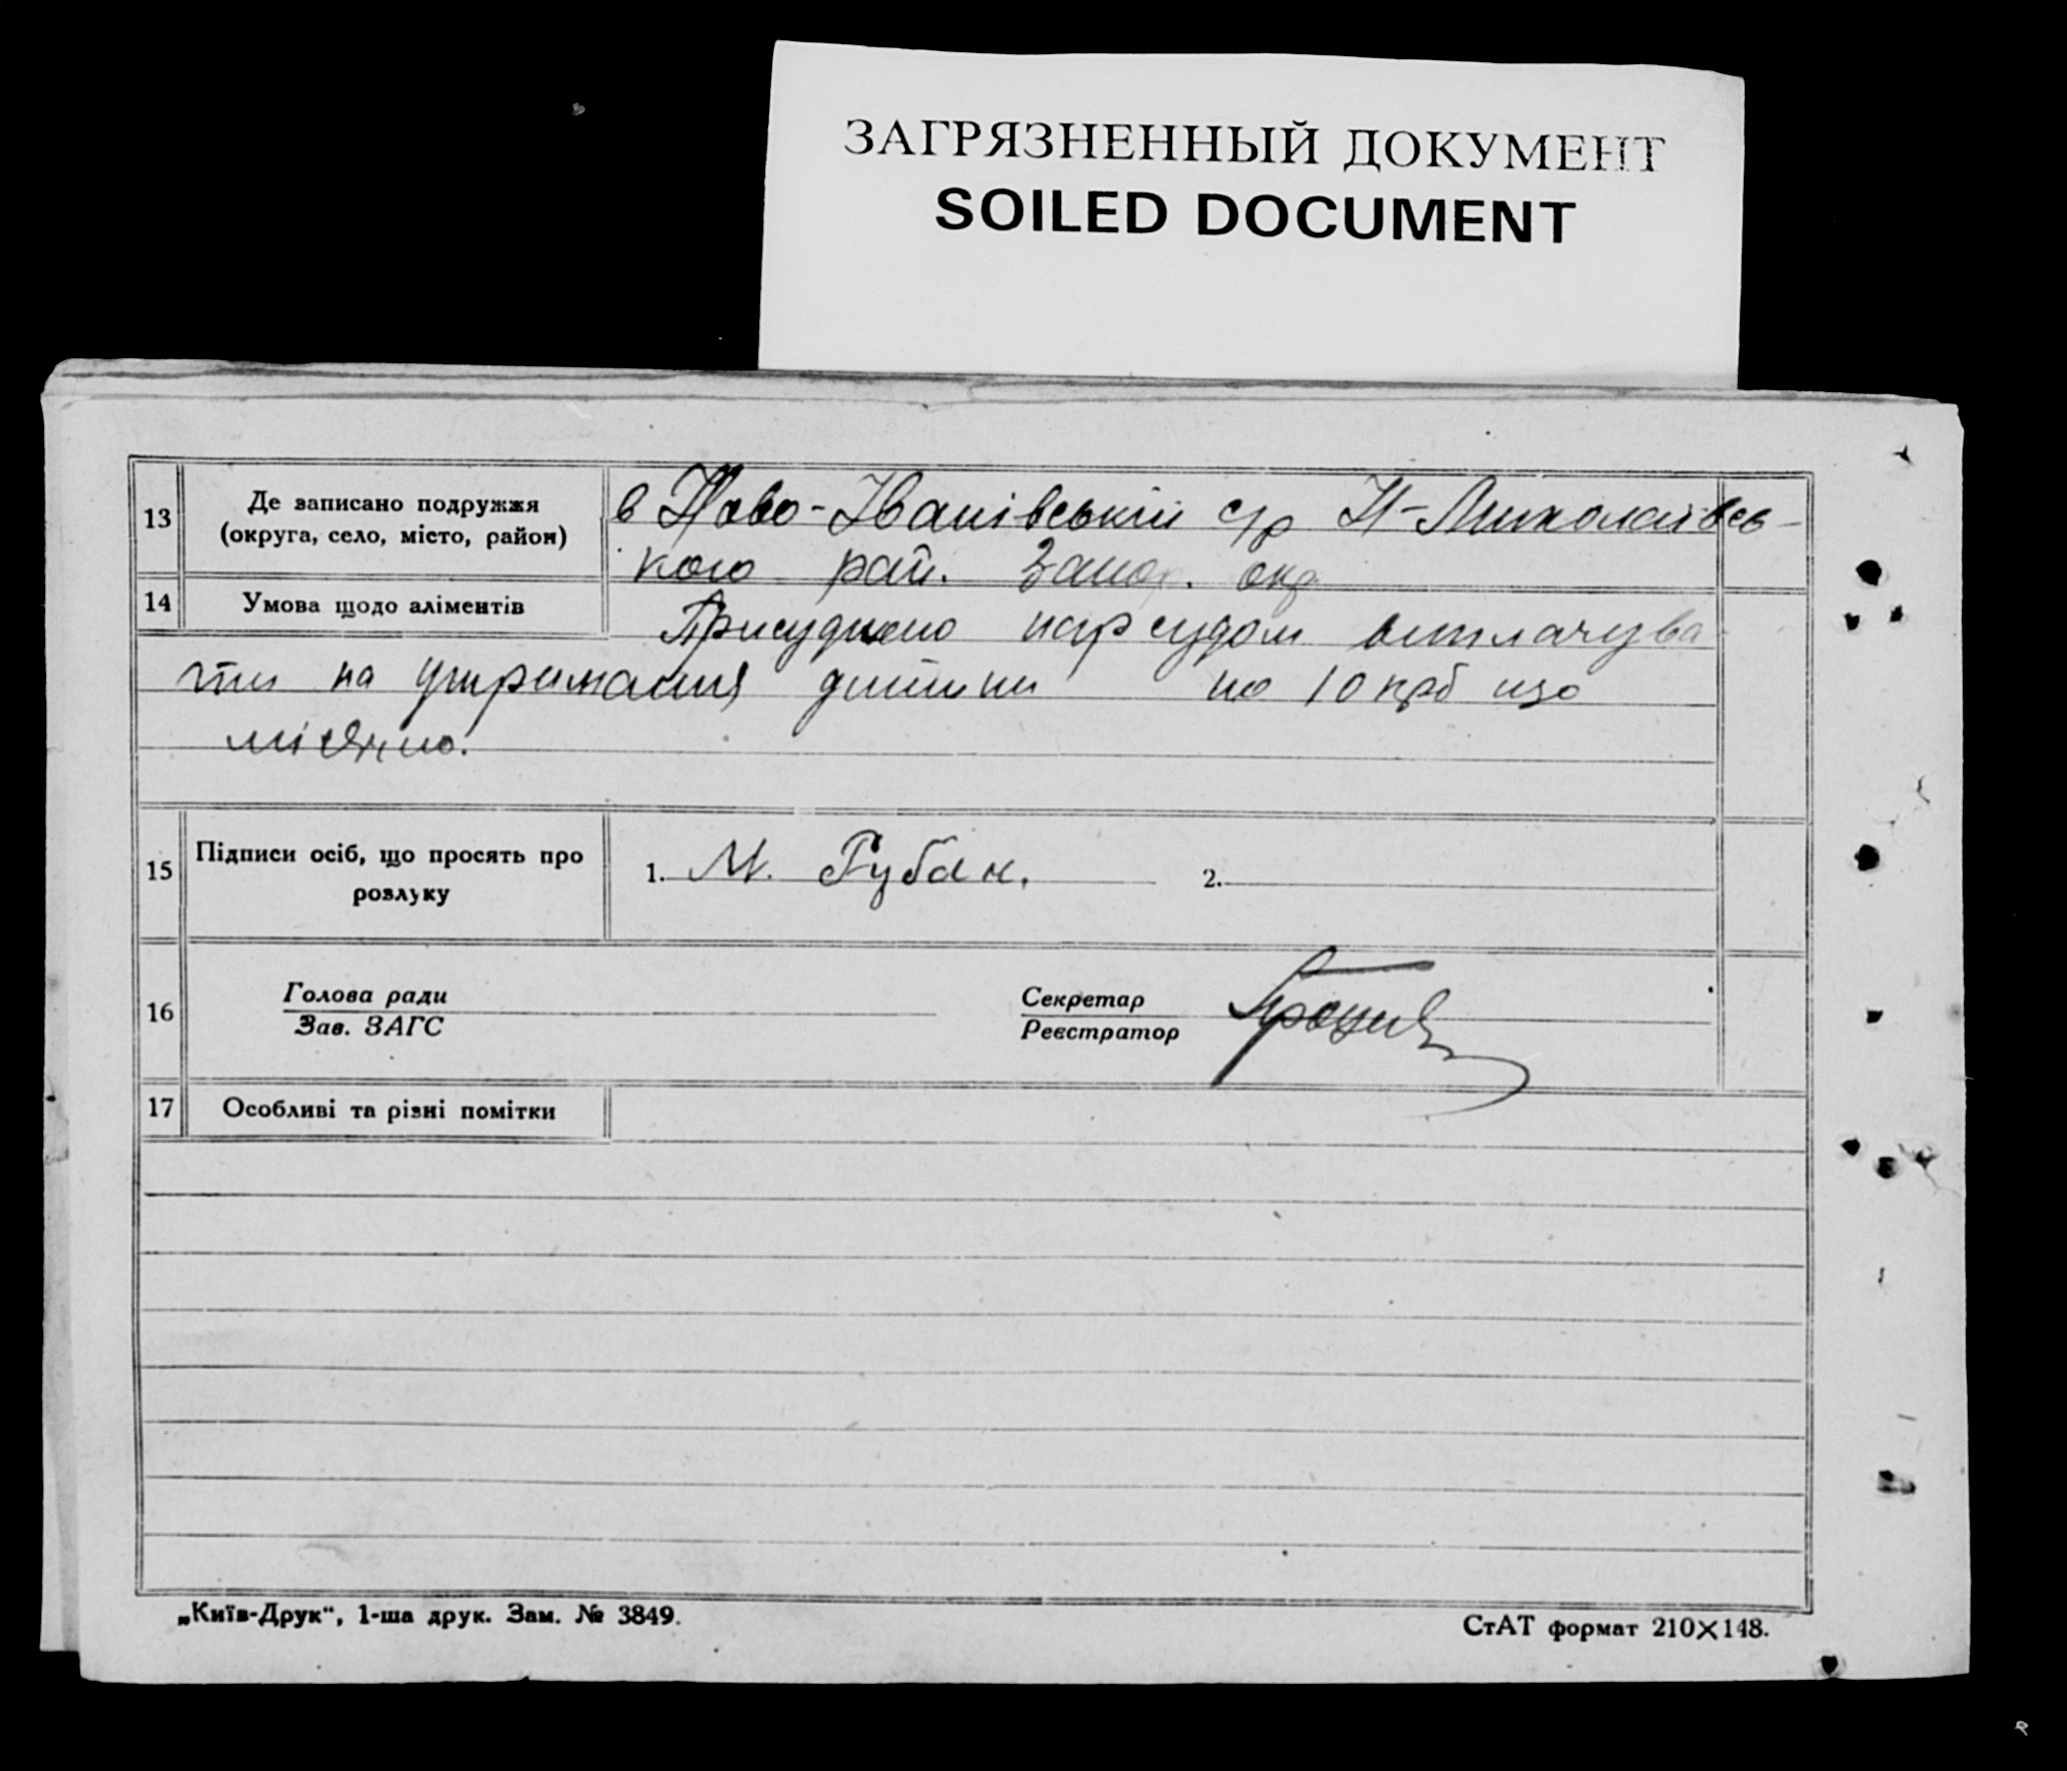 ЗАГРЯЗНЕННЫЙ ДОКУМЕНТ
SOILED DOCUMENT
13
Де записано подружжя
(округа, село, місто, район)
в Ново-Іванівській с/р Н-Миколаївсь-
кого рай. Запор. окр
14
Умова щодо аліментів
Присуджено нарсудом виплачува
ти на утримання дитини по 10 крб що
місячно.
15
Підписи осіб, що просять про
розлуку
1. М. Рубан.
2.
16
Голова ради
Зав. ЗАГС
Секретар
Реєстратор
17
Особливі та різні помітки
„Київ-Друк“, 1-ша друк. Зам. № 3849.
СтАТ формат 210×148.